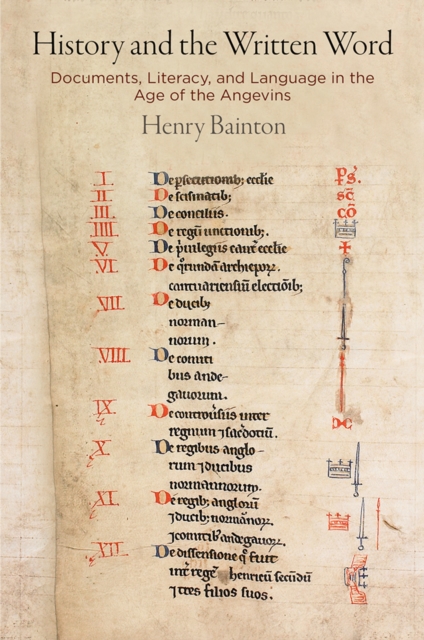 History and the Written Word
Documents, Literacy, and Language in the
Age of the Angevins
Henry Bainton
I. De ꝑsecutionib; ecclie p̄s.
II. De scismatib; sc̄
III. De conciliis. cō
IIII. De regū unctionib;.
V. De p̍uilegiis cant̄ ecclie
VI. De q̍rundā archiepoꝝ.
cantuariensiū electiōib;
VII. De ducib;
norman-
norum.
VIII. De comiti
bus ande-
gauorum.
IX. De controuersiis inter
regnum ⁊ sac̍dotiū.
X. De regibus anglo-
rum ⁊ ducibus
normannorum.
XI. De regib; anglorū
⁊ ducib; normānoꝝ.
⁊ comitib' andegauoꝝ.
XII. De dissensione q̄ fuit
int̄ regē henricū secūdū
⁊ tres filios suos.